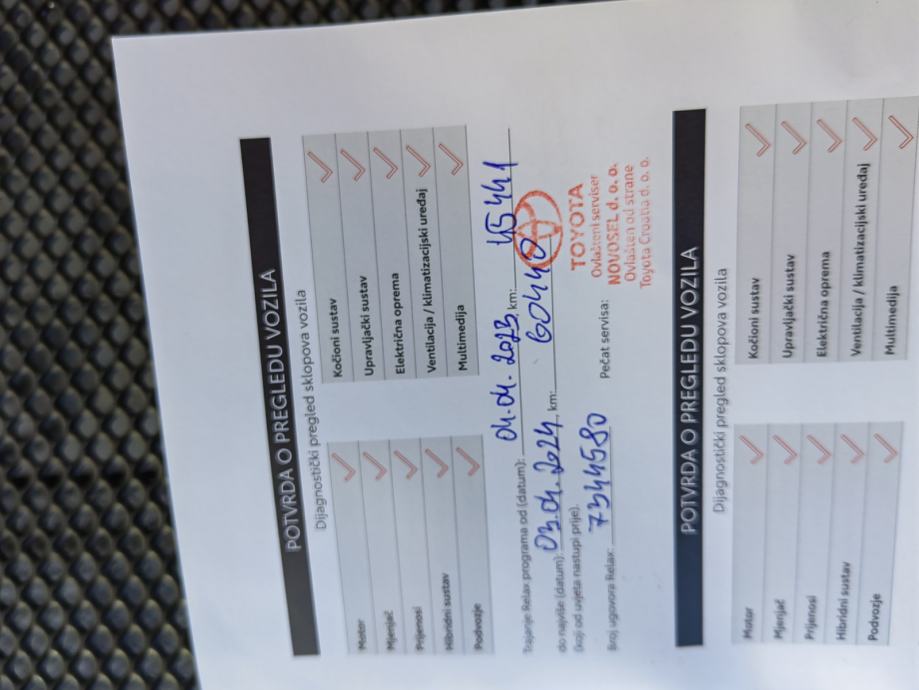 POTVRDA O PREGLEDU VOZILA
Dijagnostički pregled sklopova vozila
Motor Kočioni sustav
Mjenjač Upravljački sustav
Prijenosi Električna oprema
Hibridni sustav Ventilacija / klimatizacijski uređaj
Podvozje Multimedija
Trajanje Relax programa od (datum): 04.04.2023 km: 45441
do najviše (datum): 03.04.2024 km: 60440
(koji od uvjeta nastupi prije).
Broj ugovora Relax: 7344580 Pečat servisa:
TOYOTA
Ovlašteni serviser
NOVOSEL d. o. o.
Ovlašten od strane
Toyota Croatia d. o. o.
POTVRDA O PREGLEDU VOZILA
Dijagnostički pregled sklopova vozila
Motor Kočioni sustav
Mjenjač Upravljački sustav
Prijenosi Električna oprema
Hibridni sustav Ventilacija / klimatizacijski uređaj
Podvozje Multimedija